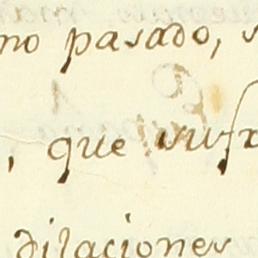 no pasado, s
, que sufr
dilaciones